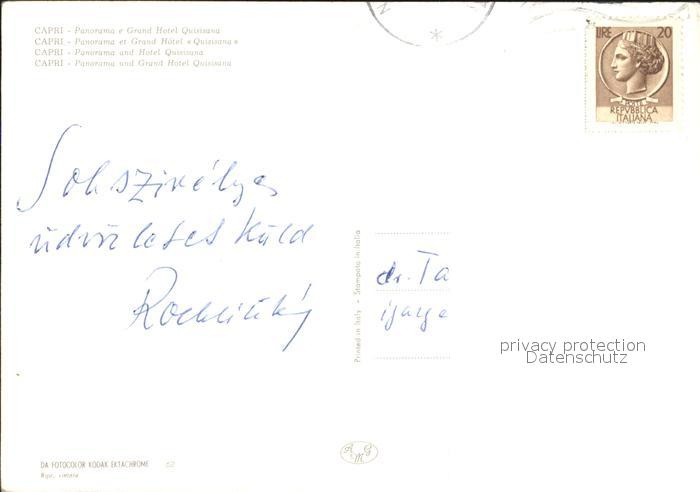 CAPRI - Panorama e Grand Hotel Quisisana
CAPRI - Panorama et Grand Hôtel « Quisisana »
CAPRI - Panorama and Hotel Quisisana
CAPRI - Panorama und Grand Hotel Quisisana
LIRE 20
POSTE
REPVBBLICA
ITALIANA
Sok szívélyes
üdvözletet küld
Printed in Italy - Stampata in Italia
dr. Ta
privacy protection
Datenschutz
A M G
DA FOTOCOLOR KODAK EKTACHROME 62
Ripr. vietata